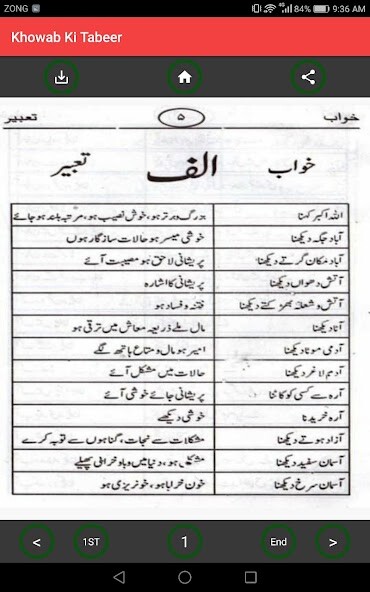 ZONG 84% 9:36 AM
Khowab Ki Tabeer
خواب ۵ تعبیر
خواب الف تعبیر
اللہ اکبر کہنا بزرگ و برتر ہو، خوش نصیب ہو، مرتبہ بلند ہو جائے
آباد جگہ دیکھنا خوشی میسر ہو حالات سازگار ہوں
آباد مکان گرتے دیکھنا پریشانی لاحق ہو مصیبت آئے
آتش دھواں دیکھنا پریشانی کا اشارہ
آتش و شعلہ بھڑکتے دیکھنا فتنہ و فساد ہو
آٹا دیکھنا مال ملے ذریعہ معاش میں ترقی ہو
آدمی موٹا دیکھنا امیر ہو مال و متاع ہاتھ لگے
آدم لاغر دیکھنا حالات میں مشکل آئے
آرہ سے کسی کو کاٹنا پریشانی جائے خوشی آئے
آرہ خریدنا خوشی دیکھے
آزاد ہوتے دیکھنا مشکلات سے نجات، گناہوں سے توبہ کرے
آسمان سفید دیکھنا مشکل ہو، دنیا میں وبا و خرابی پھیلے
آسمان سرخ دیکھنا خون خرابا ہو، خونریزی ہو
< 1ST 1 End >